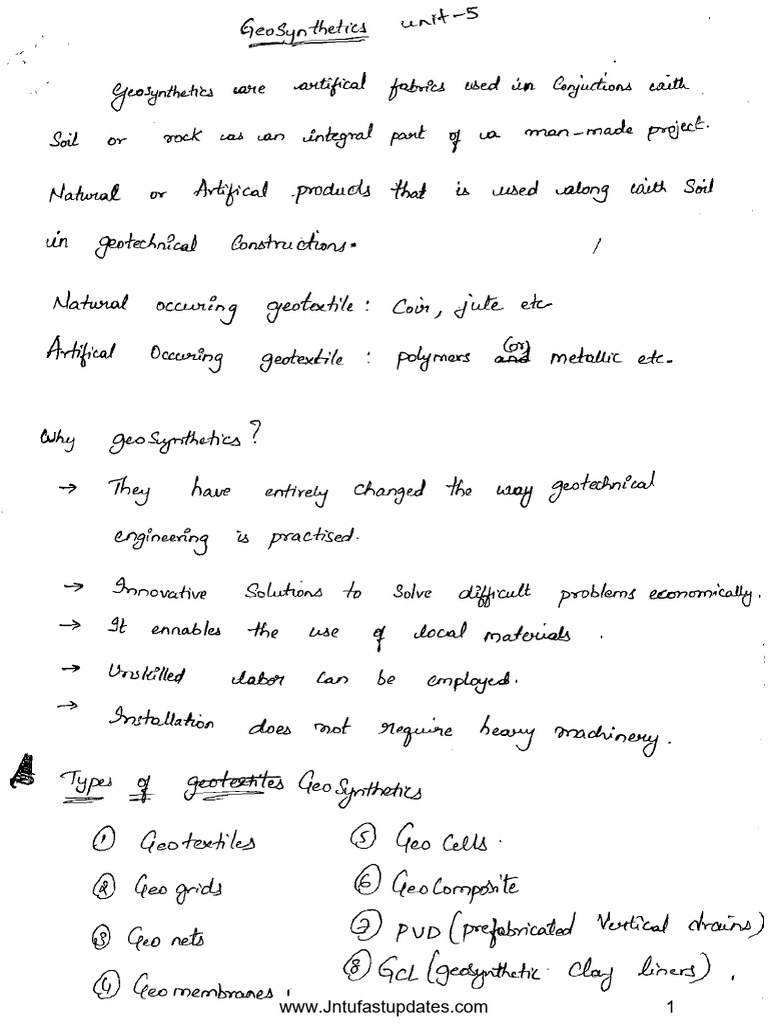 GeoSynthetics unit-5
Geosynthetics are artifical fabrics used in Conjuctions with
Soil or rock as an integral part of a man-made project.
Natural or Artifical products that is used along with Soil
in geotechnical Constructions.
Natural occuring geotextile : Coir, jute etc
(or)
Artifical Occuring geotextile : polymers and metallic etc.
Why geosynthetics?
→ They have entirely changed the way geotechnical
engineering is practised.
→ Innovative Solutions to Solve difficult problems economically.
→ It ennables the use of local materials.
→ Unskilled labor can be employed.
→ Installation does not require heavy machinery.
Types of geotextites GeoSynthetics
① Geotextiles ⑤ Geo Cells.
② Geo grids ⑥ GeoComposite
③ Geo nets ⑦ PVD (prefabricated Vertical drains)
④ Geomembranes. ⑧ GCL (geosynthetic clay liners).
www.Jntufastupdates.com 1